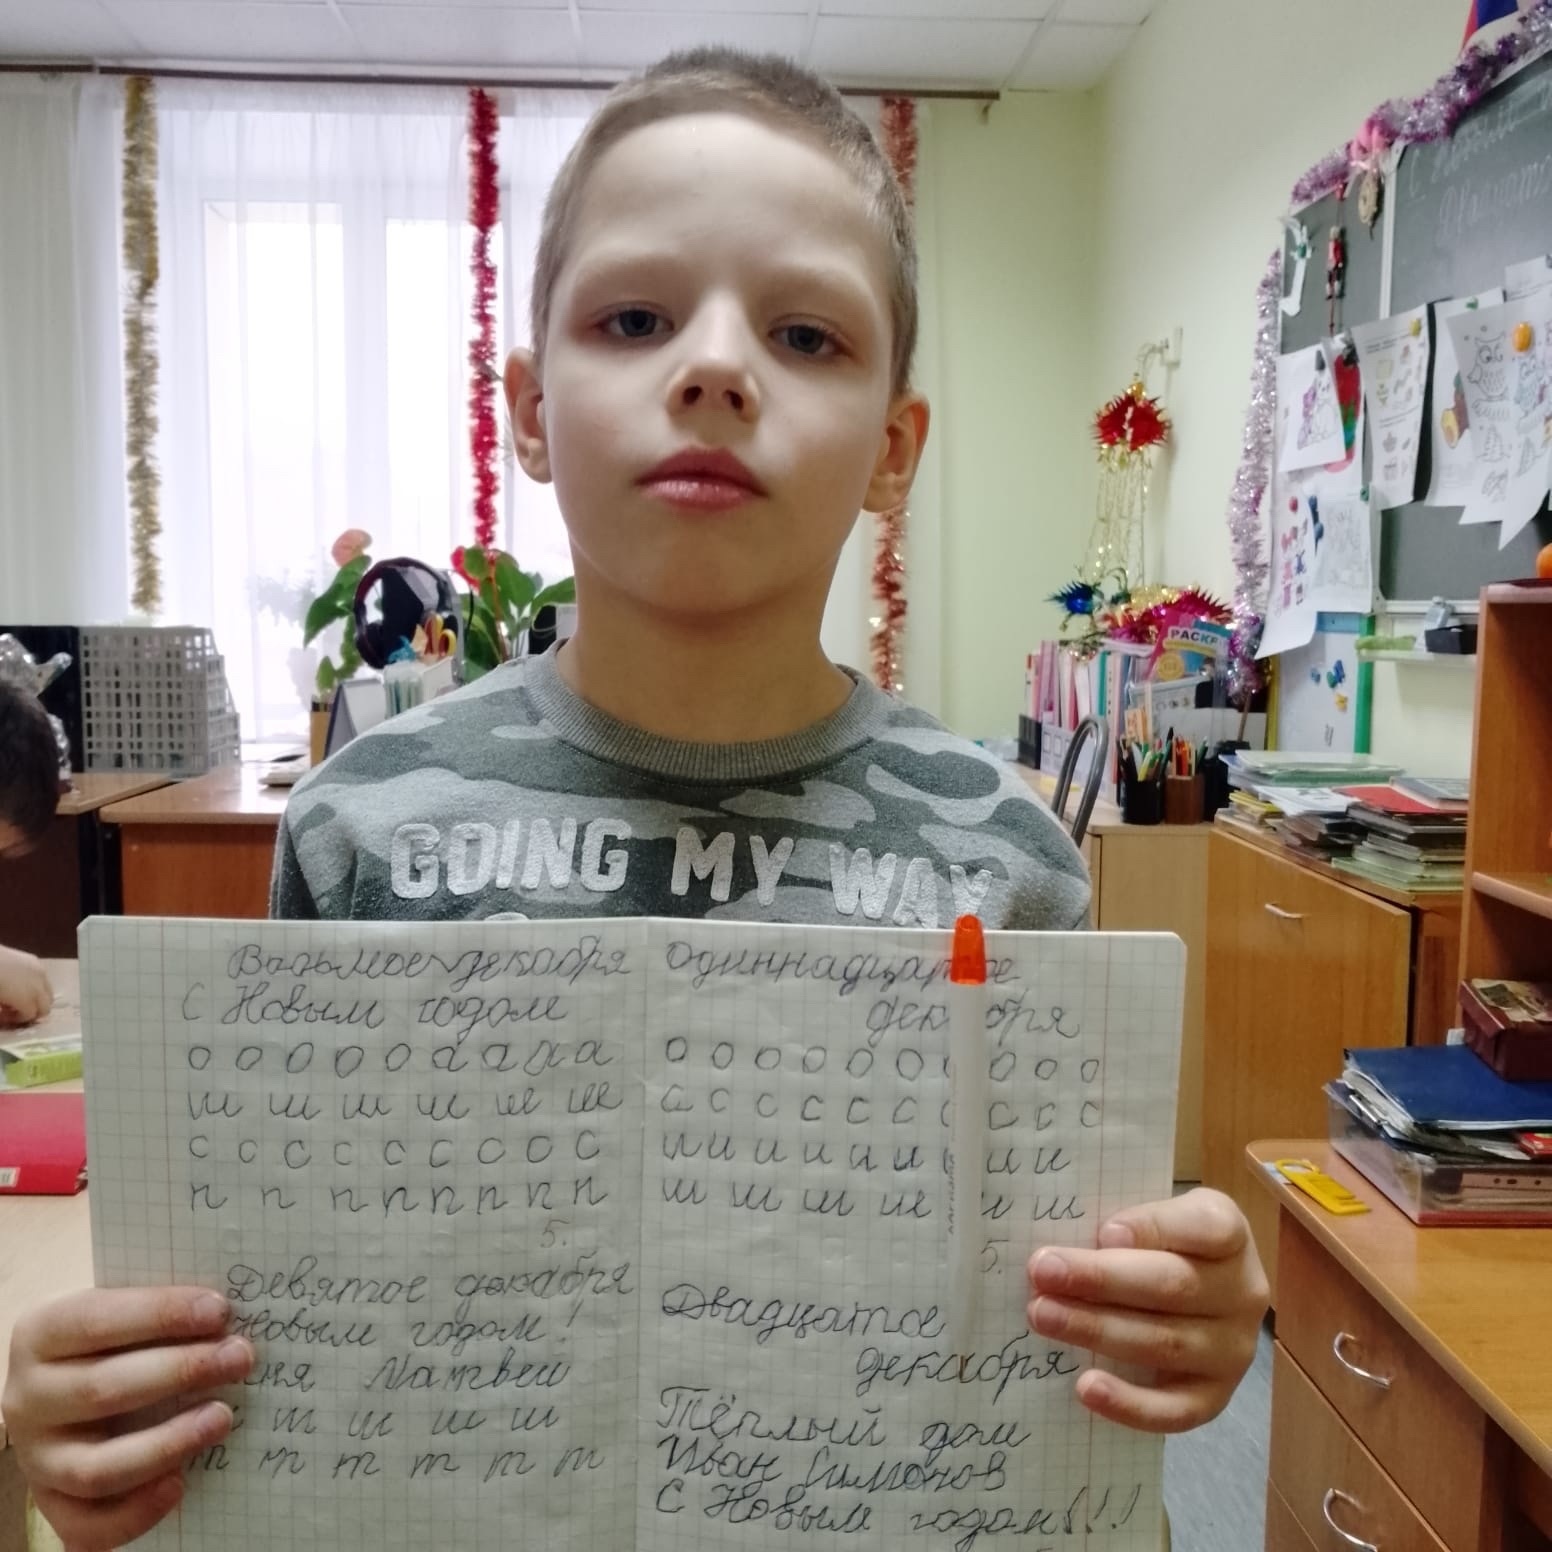 GOING MY WAY
Возьмое декабря
С Новым годом
о о о о о а а а а
ш ш ш ш ш ш
с с с с с с с о с
п п п п п п п п
5.
Девятое декабря
Новым годом!
Матвей
т ш ш ш
т т т т т т
Одиннадцатое
декабря
о о о о о о о о о
с с с с с с с с с
и и и и и и и и
ш ш ш ш ш
5.
Двадцатое
декабря
Тёплый дом
Иван Симонов
С Новым годом!!!
РАСКР